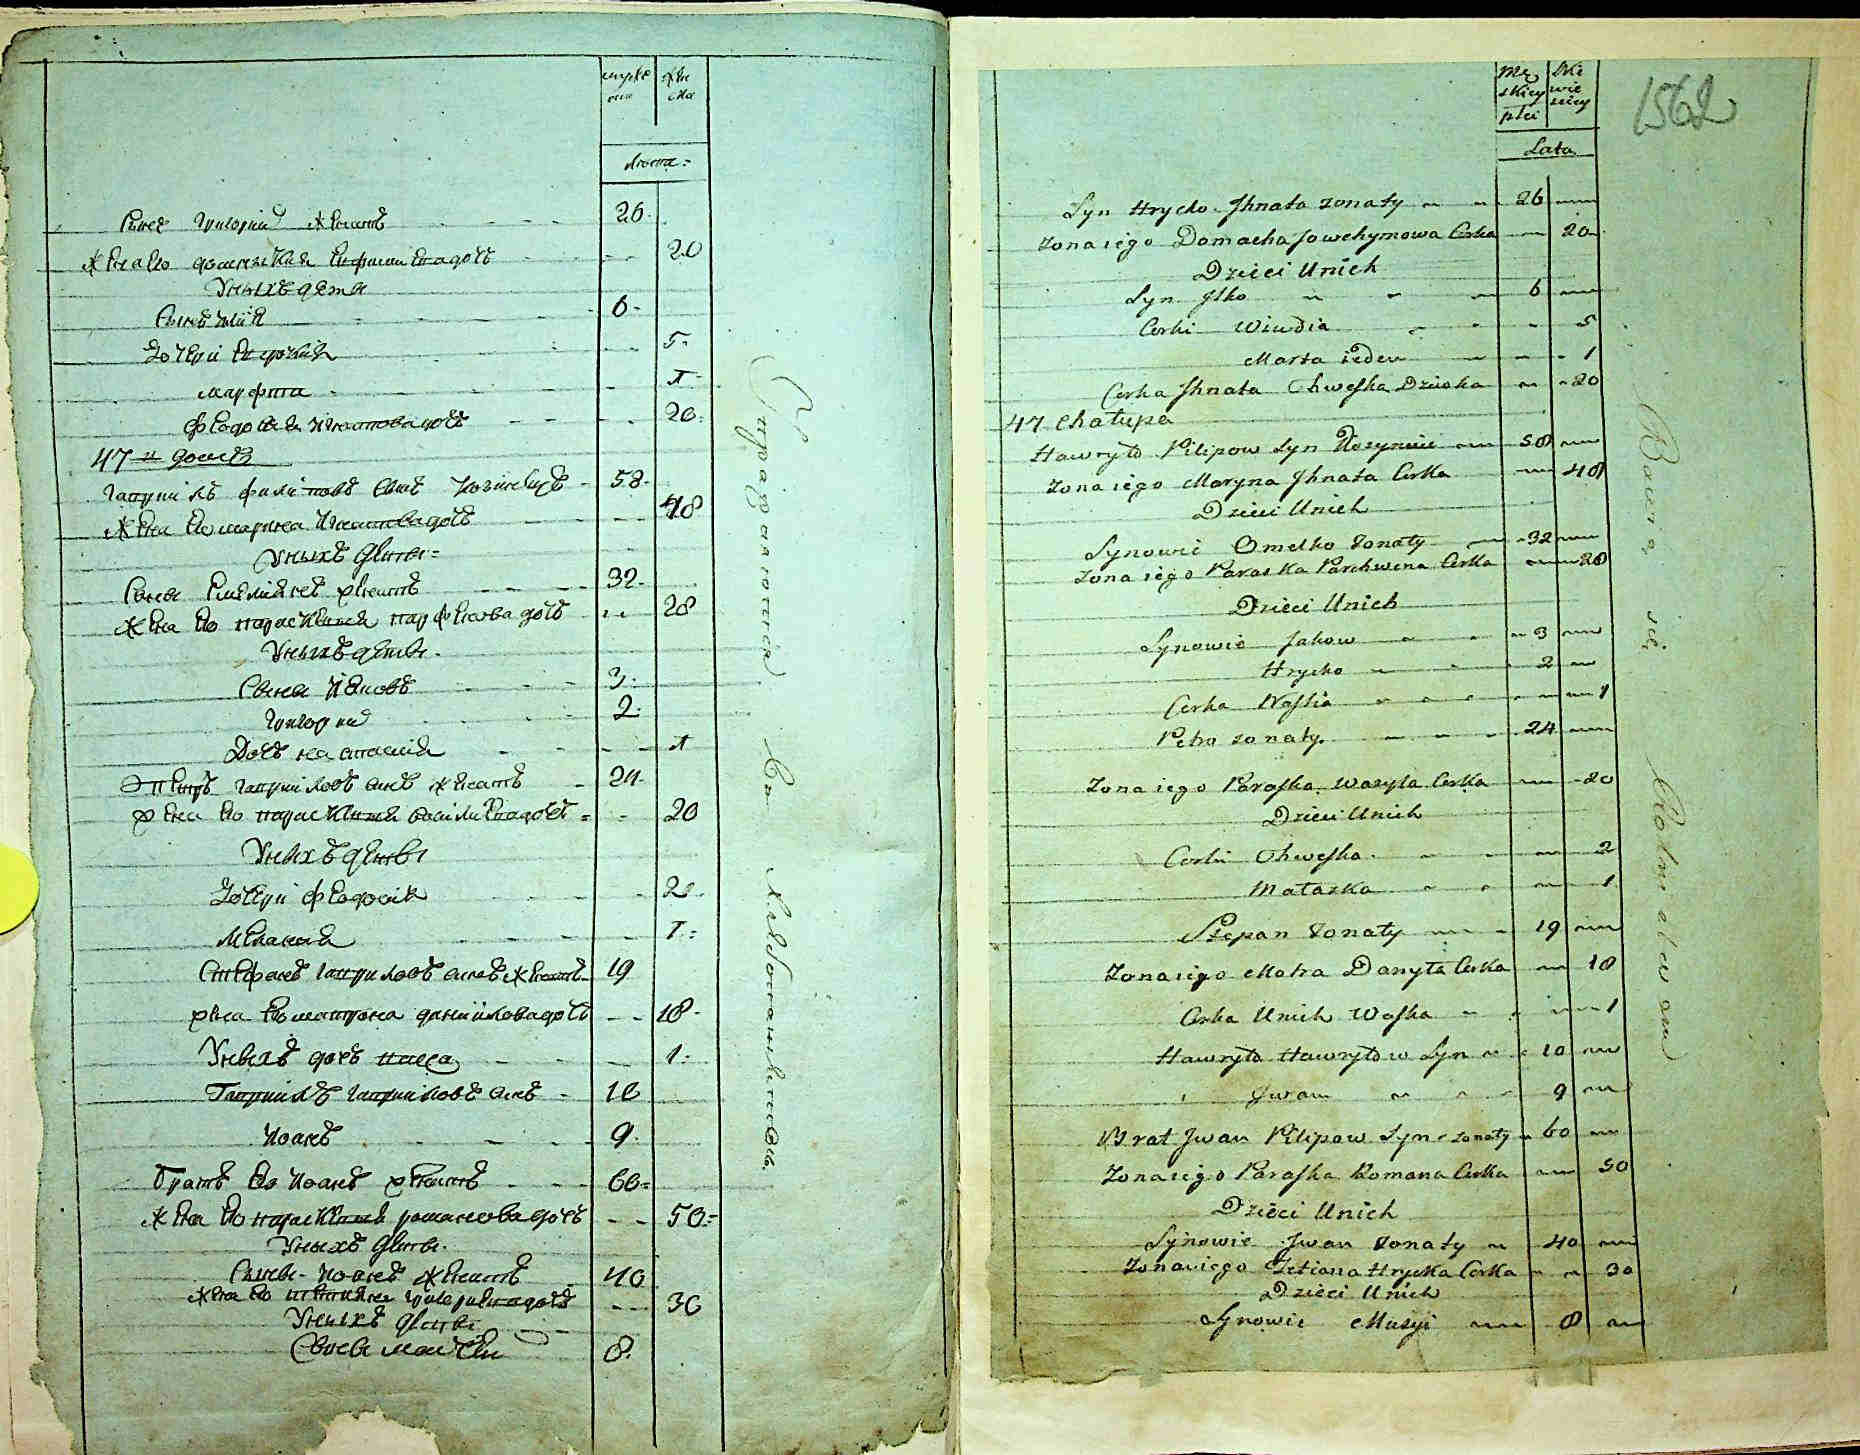 мужеска
женска
лѣта =
Сынъ Григорий женатъ 26
жена его домникия Ефимиева дочь 20
У нихъ дети
Сынъ Илия 6
дочери Евдокия 5
марфа 1
Феодосия Игнатова дочь 20
47 й домъ
Гавриилъ филиповъ сынъ 58
жена его марина Игнатова дочь 48
У нихъ дети
Сыны Емелиянъ женатъ 32
жена его параскевия парфенова дочь 28
У нихъ дети
Сыны Иаковъ 3
Григорий 2
Дочь настасия 1
Петръ гавриловъ сынъ женатъ 24
жена его параскевия василиева дочь 20
У нихъ дети
дочери феодосия 2
Мелания 1
Стефанъ гавриловъ сынъ женатъ 19
жена его матрона даниилова дочь 18
У нихъ дочь васса 1
Гавриилъ гавриловъ сынъ 10
Иоанъ 9
братъ его Иоанъ женатъ 60
жена его параскевия романова дочь 50
У нихъ дети
Сыны Иоанъ женатъ 40
жена его татияна григориева дочь 30
У нихъ дети
Сыны моисей 8
1562
Męskiey płci
Lata
Syn Hrycko Jhnata żonaty 26
Żona iego Domacha Jowchymowa Corka 20
Dzieci Unich
Syn Jlko 6
Corki Wiwdia 5
Marta ieden 1
Corka Jhnata Chweska Dziwka 20
47 Chałupa
Hawryło Pilipow Syn 58
Żona iego Maryna Jhnata Corka 48
Dzieci Unich
Synowie Omelko żonaty 32
Żona iego Paraska Parchwena Corka 28
Dzieci Unich
Synowie Jakow 3
Hrycko 2
Corka Nastia 1
Petro żonaty 24
Żona iego Paraska Wasyla Corka 20
Dzieci Unich
Corki Chweska 2
Małazka 1
Stepan żonaty 19
Żona iego Motra Danyła Corka 18
Corka Unich Waska 1
Hawryło Hawryłow Syn 10
Jwan 9
Brat Jwan Pilipow Syn żonaty 60
Żona iego Paraska Romana Corka 50
Dzieci Unich
Synowie Jwan żonaty 40
Żona iego Tetiana Hrycka Corka 30
Dzieci Unich
Synowie Musyi 8